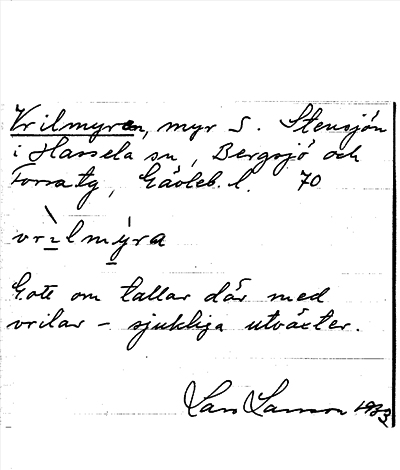 Vrilmyren, myr S. Stensjön
i Hassela sn, Bergsjö och
Forsa tg, Gävleb. l. 70
vrìlmýra
Gott om tallar där med
vrilar – sjukliga utväxter.
Lars Larsson 1933